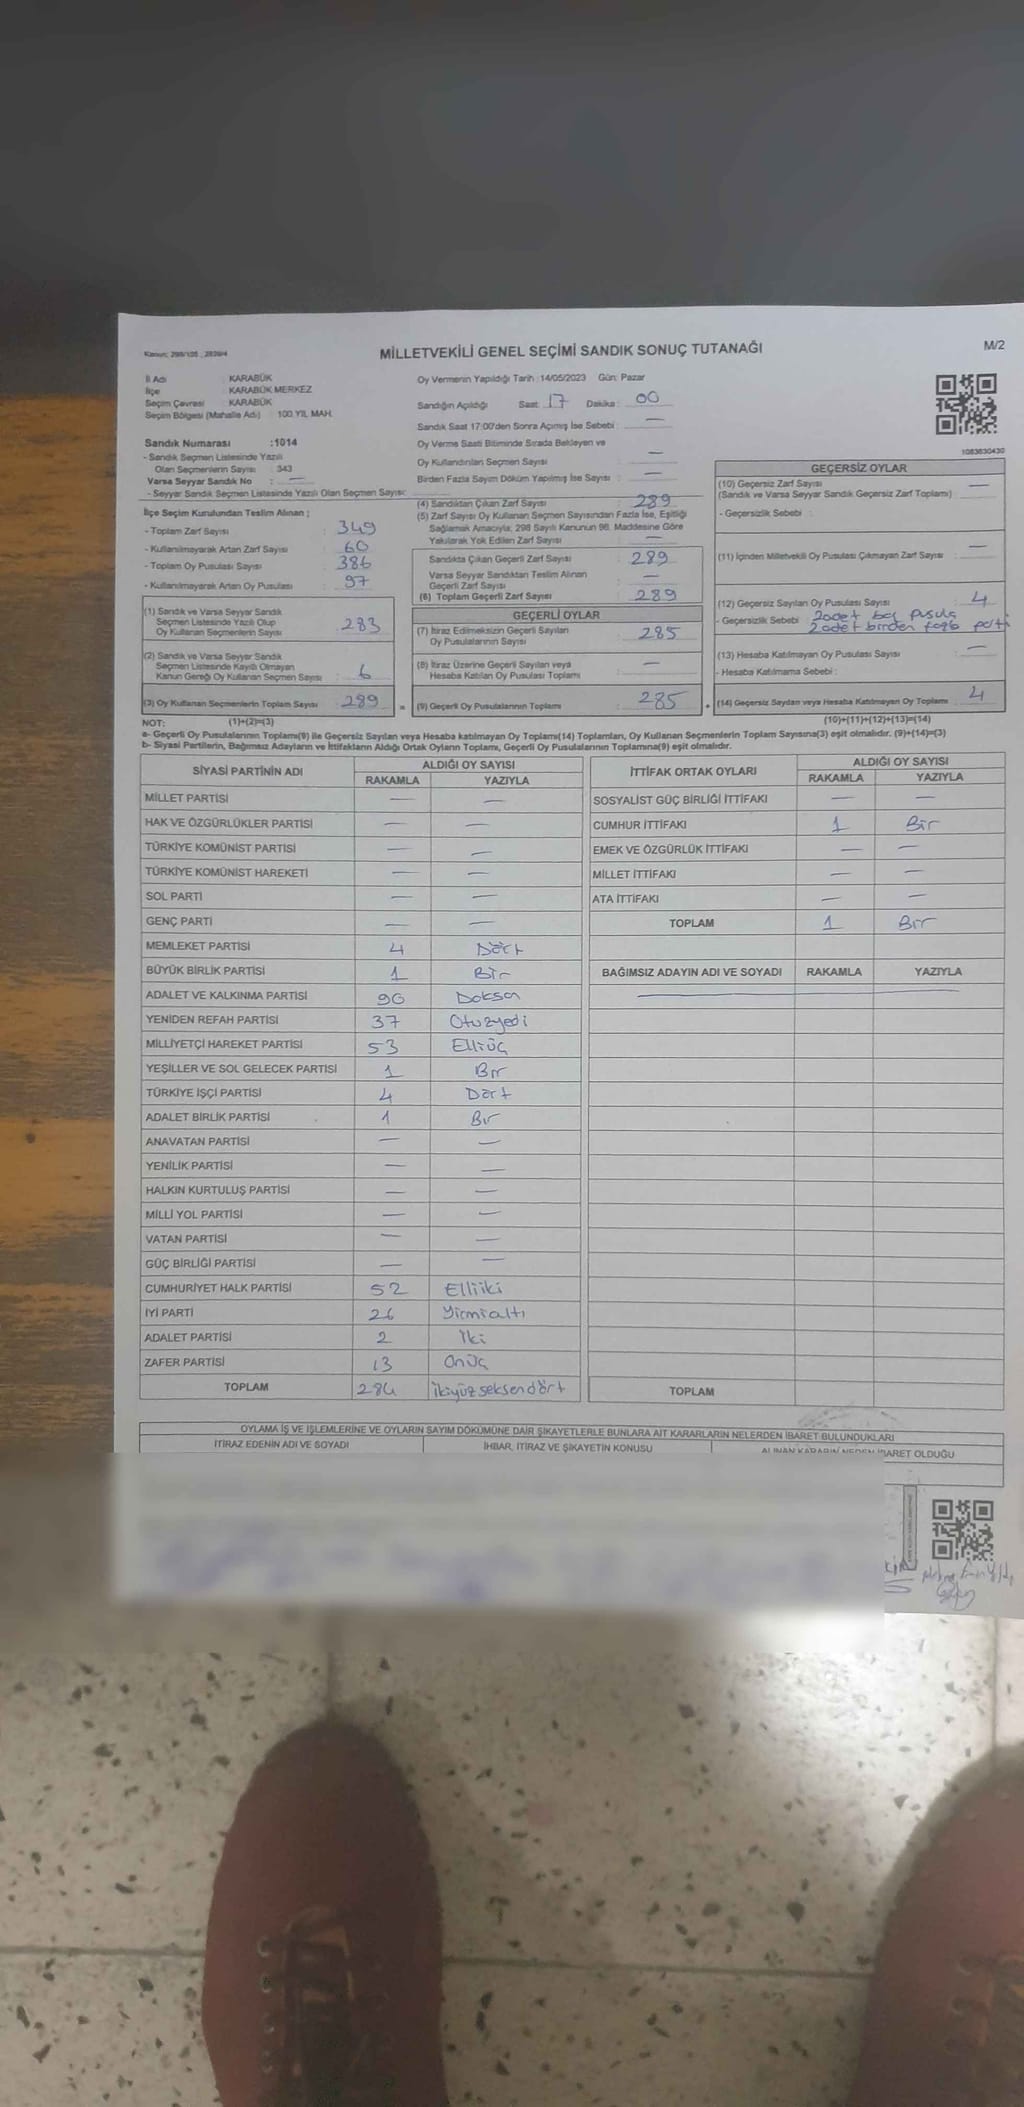 Kanun: 298/105 , 2839/4
MİLLETVEKİLİ GENEL SEÇİMİ SANDIK SONUÇ TUTANAĞI
M/2
İl Adı : KARABÜK
İlçe : KARABÜK MERKEZ
Seçim Çevresi : KARABÜK
Seçim Bölgesi (Mahalle Adı) : 100.YIL MAH.
Sandık Numarası :1014
- Sandık Seçmen Listesinde Yazılı
Olan Seçmenlerin Sayısı : 343
Varsa Seyyar Sandık No : —
- Seyyar Sandık Seçmen Listesinde Yazılı Olan Seçmen Sayısı:
İlçe Seçim Kurulundan Teslim Alınan ;
- Toplam Zarf Sayısı : 349
- Kullanılmayarak Artan Zarf Sayısı : 60
- Toplam Oy Pusulası Sayısı : 386
- Kullanılmayarak Artan Oy Pusulası : 97
(1) Sandık ve Varsa Seyyar Sandık
Seçmen Listesinde Yazılı Olup
Oy Kullanan Seçmenlerin Sayısı : 283
(2) Sandık ve Varsa Seyyar Sandık
Seçmen Listesinde Kayıtlı Olmayan
Kanun Gereği Oy Kullanan Seçmen Sayısı : 6
(3) Oy Kullanan Seçmenlerin Toplam Sayısı : 289
Oy Vermenin Yapıldığı Tarih :14/05/2023 Gün: Pazar
Sandığın Açıldığı Saat: 17 Dakika : 00
Sandık Saat 17:00'den Sonra Açılmış İse Sebebi : —
Oy Verme Saati Bitiminde Sırada Bekleyen ve
Oy Kullandırılan Seçmen Sayısı : —
Birden Fazla Sayım Döküm Yapılmış İse Sayısı : —
(4) Sandıktan Çıkan Zarf Sayısı : 289
(5) Zarf Sayısı Oy Kullanan Seçmen Sayısından Fazla İse, Eşitliği
Sağlamak Amacıyla; 298 Sayılı Kanunun 98. Maddesine Göre
Yakılarak Yok Edilen Zarf Sayısı : —
Sandıkta Çıkan Geçerli Zarf Sayısı : 289
Varsa Seyyar Sandıktan Teslim Alınan
Geçerli Zarf Sayısı : —
(6) Toplam Geçerli Zarf Sayısı : 289
GEÇERLİ OYLAR
(7) İtiraz Edilmeksizin Geçerli Sayılan
Oy Pusulalarının Sayısı : 285
(8) İtiraz Üzerine Geçerli Sayılan veya
Hesaba Katılan Oy Pusulası Toplamı : —
= (9) Geçerli Oy Pusulalarının Toplamı : 285
1083630430
GEÇERSİZ OYLAR
(10) Geçersiz Zarf Sayısı : —
(Sandık ve Varsa Seyyar Sandık Geçersiz Zarf Toplamı)
- Geçersizlik Sebebi :
(11) İçinden Milletvekili Oy Pusulası Çıkmayan Zarf Sayısı : —
(12) Geçersiz Sayılan Oy Pusulası Sayısı : 4
- Geçersizlik Sebebi : 2 adet boş pusula
2 adet birden fazla parti
(13) Hesaba Katılmayan Oy Pusulası Sayısı : —
- Hesaba Katılmama Sebebi :
+ (14) Geçersiz Sayılan veya Hesaba Katılmayan Oy Toplamı : 4
NOT: (1)+(2)=(3)
(10)+(11)+(12)+(13)=(14)
a- Geçerli Oy Pusulalarının Toplamı(9) ile Geçersiz Sayılan veya Hesaba katılmayan Oy Toplamı(14) Toplamları, Oy Kullanan Seçmenlerin Toplam Sayısına(3) eşit olmalıdır. (9)+(14)=(3)
b- Siyasi Partilerin, Bağımsız Adayların ve İttifakların Aldığı Ortak Oyların Toplamı, Geçerli Oy Pusulalarının Toplamına(9) eşit olmalıdır.
SİYASİ PARTİNİN ADI ALDIĞI OY SAYISI
RAKAMLA YAZIYLA
MİLLET PARTİSİ — —
HAK VE ÖZGÜRLÜKLER PARTİSİ — —
TÜRKİYE KOMÜNİST PARTİSİ — —
TÜRKİYE KOMÜNİST HAREKETİ — —
SOL PARTİ — —
GENÇ PARTİ — —
MEMLEKET PARTİSİ 4 Dört
BÜYÜK BİRLİK PARTİSİ 1 Bir
ADALET VE KALKINMA PARTİSİ 90 Doksan
YENİDEN REFAH PARTİSİ 37 Otuzyedi
MİLLİYETÇİ HAREKET PARTİSİ 53 Elliüç
YEŞİLLER VE SOL GELECEK PARTİSİ 1 Bir
TÜRKİYE İŞÇİ PARTİSİ 4 Dört
ADALET BİRLİK PARTİSİ 1 Bir
ANAVATAN PARTİSİ — —
YENİLİK PARTİSİ — —
HALKIN KURTULUŞ PARTİSİ — —
MİLLİ YOL PARTİSİ — —
VATAN PARTİSİ — —
GÜÇ BİRLİĞİ PARTİSİ — —
CUMHURİYET HALK PARTİSİ 52 Elliiki
İYİ PARTİ 26 Yirmialtı
ADALET PARTİSİ 2 İki
ZAFER PARTİSİ 13 Onüç
TOPLAM 284 ikiyüz seksendört
İTTİFAK ORTAK OYLARI ALDIĞI OY SAYISI
RAKAMLA YAZIYLA
SOSYALİST GÜÇ BİRLİĞİ İTTİFAKI — —
CUMHUR İTTİFAKI 1 Bir
EMEK VE ÖZGÜRLÜK İTTİFAKI — —
MİLLET İTTİFAKI — —
ATA İTTİFAKI — —
TOPLAM 1 Bir
BAĞIMSIZ ADAYIN ADI VE SOYADI RAKAMLA YAZIYLA
TOPLAM
OYLAMA İŞ VE İŞLEMLERİNE VE OYLARIN SAYIM DÖKÜMÜNE DAİR ŞİKAYETLERLE BUNLARA AİT KARARLARIN NELERDEN İBARET BULUNDUKLARI
İTİRAZ EDENİN ADI VE SOYADI İHBAR, İTİRAZ VE ŞİKAYETİN KONUSU ALINAN KARARIN NEDEN İBARET OLDUĞU